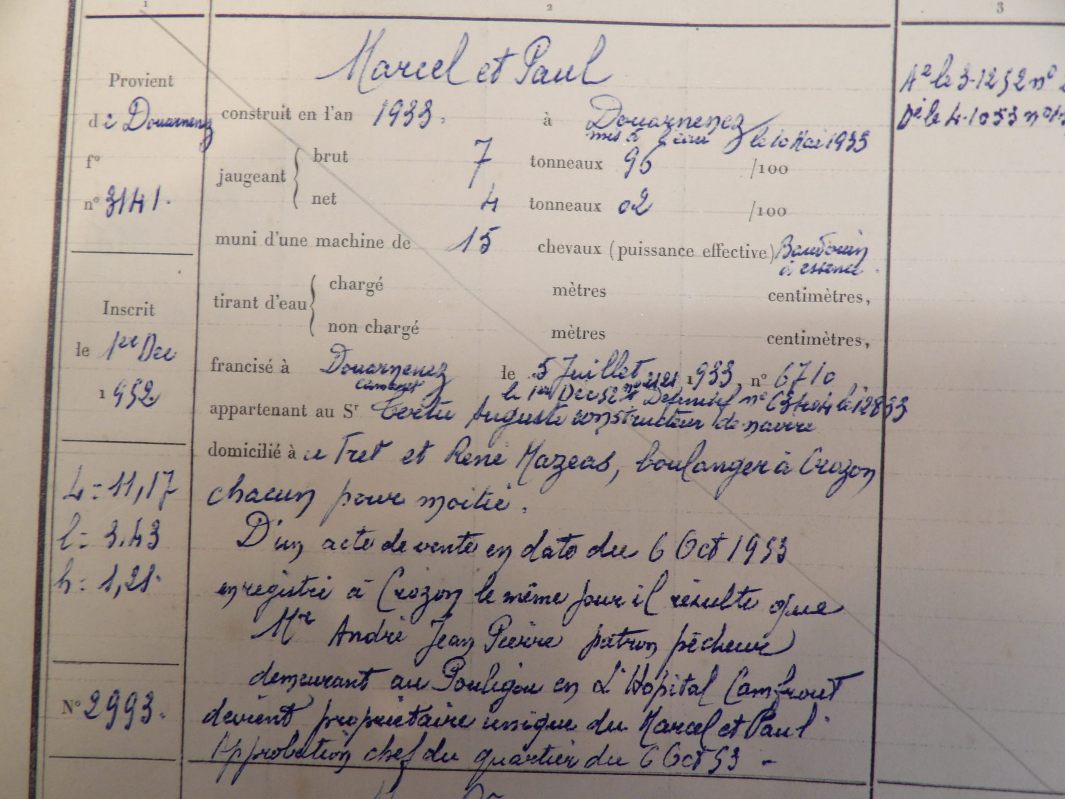 1
2
3
Provient
de Douarnenez
f°
n° 3141.
Inscrit
le 1er Dec
1952
L = 11,17
l = 3.43
h = 1,21
N° 2993.
Marcel et Paul
construit en l'an 1933. à Douarnenez
mis à l'eau le 10 Mai 1933
jaugeant { brut 7 tonneaux 96 /100
net 4 tonneaux 02 /100
muni d'une machine de 15 chevaux (puissance effective) Baudouin
à essence.
tirant d'eau { chargé mètres centimètres,
non chargé mètres centimètres,
francisé à Douarnenez le 5 Juillet 1933, n° 6710
Camaret le 1er Dec 52 n° 2121 Definitif n°
appartenant au Sr Tertu Auguste constructeur de navire
domicilié à Le Fret et René Mazeas, boulanger à Crozon
chacun pour moitié.
D'un acte de vente en date du 6 Oct 1953
enregistré à Crozon le même jour il résulte que
Mr André Jean Pierre patron pêcheur
demeurant au Pouligou en L'Hopital Camfrout
devient propriétaire unique du Marcel et Paul
Approbation chef du quartier du 6 Oct 53 -
Ac le 3-12 52 n°
Dt le 4-10 53 n°